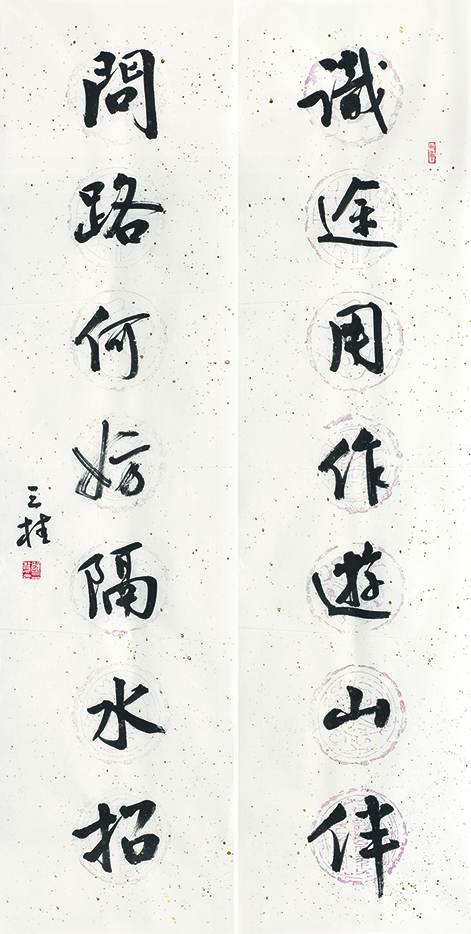 識途用作遊山伴
問路何妨隔水招
三桂